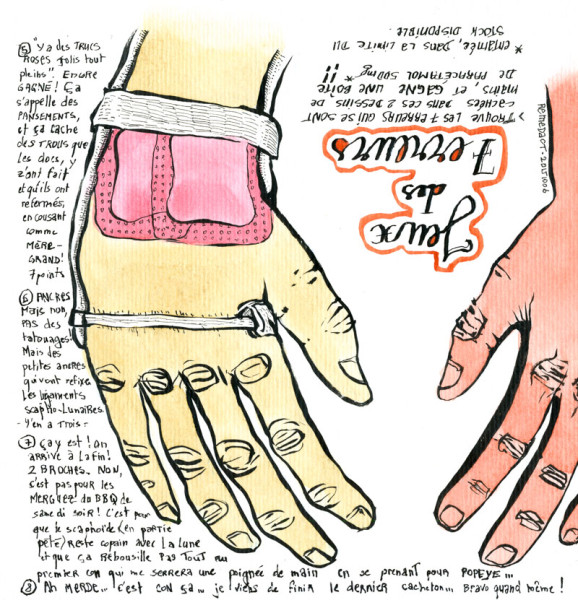 ⑤ "Y a des TRUCS
ROSES jolis tout
pleins". ENCORE
GAGNÉ! ÇA
s'appelle des
PANSEMENTS,
et ça cache
des TROUS que
les docs, y
z'ont fait
et qu'ils ont
refermés,
en cousant
comme
MÈRE-
GRAND!
7 points
⑥ ANCRES
Mais non,
PAS des
tatouages.
Mais des
petites ancres
qui vont refixer
Les ligaments
scapho-Lunaires.
- Y'en a trois -
⑦ Çay est! On
ARRIVE À La fin!
2 BROCHES. NON,
c'est pas pour les
MERGUEZ du BBQ de
same di soir! C'est pour
que le scaphoïde (en partie
pété) reste copain avec La Lune
et que ça REbousille PAS TOUT au
premier con qui me serrera une poignée de main en se prenant pour POPEYE...
⑧ Ah MERDE... c'est CON ça... je viens de finir le dernier cacheton... Bravo quand même!
Jeux
des
7 erreurs
> TROUVE LES ERREURS QUI SE SONT
cachées dans ces 2 dessins de
mains, et GAGNE UNE BOÎTE
DE PARACÉTAMOL 500mg* !!
* entamée, DANS LA LIMITE DU
STOCK DISPONIBLE.
20151006